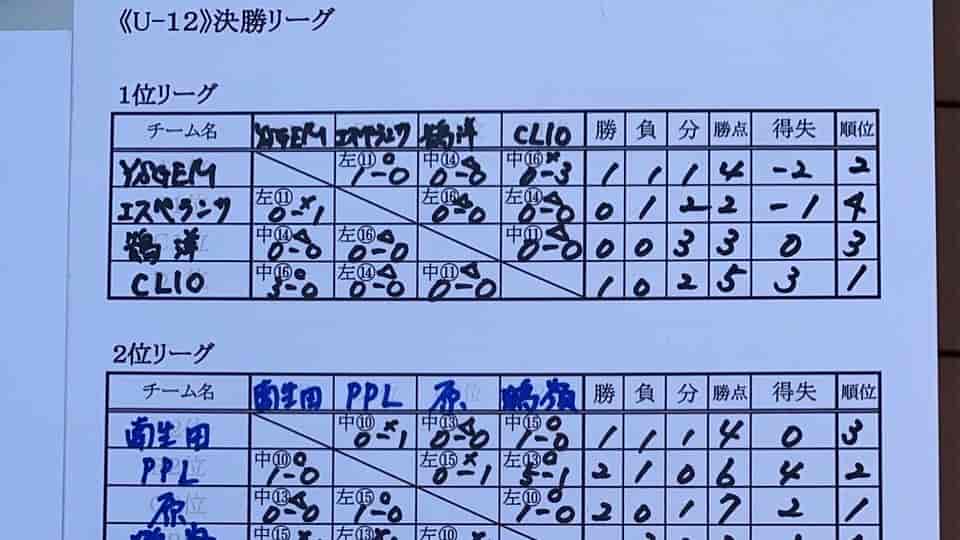 《U-12》決勝リーグ
1位リーグ
チーム名 YSGEM エスペランサ 鶴洋 CLIO 勝 負 分 勝点 得失 順位
YSGEM 左⑪○ 1-0 中⑭△ 0-0 中⑯× 0-3 1 1 1 4 -2 2
エスペランサ 左⑪× 0-1 左⑯△ 0-0 左⑭△ 0-0 0 1 2 2 -1 4
鶴洋 中⑭△ 0-0 左⑯△ 0-0 中⑪△ 0-0 0 0 3 3 0 3
CLIO 中⑯○ 3-0 左⑭△ 0-0 中⑪△ 0-0 1 0 2 5 3 1
2位リーグ
チーム名 南生田 PPL 原 鶴嶺 勝 負 分 勝点 得失 順位
南生田 中⑩× 0-1 中⑬△ 0-0 中⑮○ 1-0 1 1 1 4 0 3
PPL 中⑩○ 1-0 左⑮× 0-1 左⑬○ 5-1 2 1 0 6 4 2
原 中⑬△ 0-0 左⑮○ 1-0 左⑩○ 1-0 2 0 1 7 2 1
中⑮× 左⑬× 左⑩